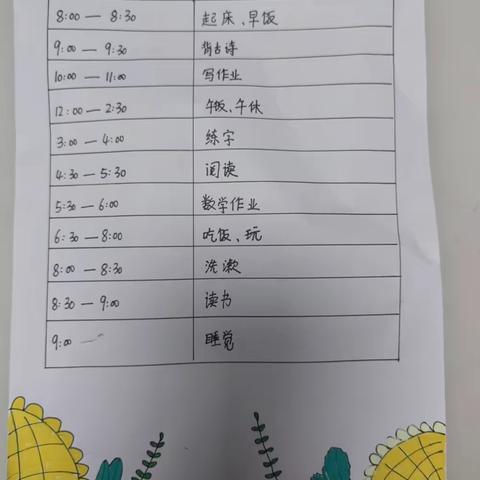 8:00 — 8:30 起床、早饭
9:00 — 9:30 背古诗
10:00 — 11:00 写作业
12:00 — 2:30 午饭、午休
3:00 — 4:00 练字
4:30 — 5:30 阅读
5:30 — 6:00 数学作业
6:30 — 8:00 吃饭、玩
8:00 — 8:30 洗漱
8:30 — 9:00 读书
9:00 — 睡觉